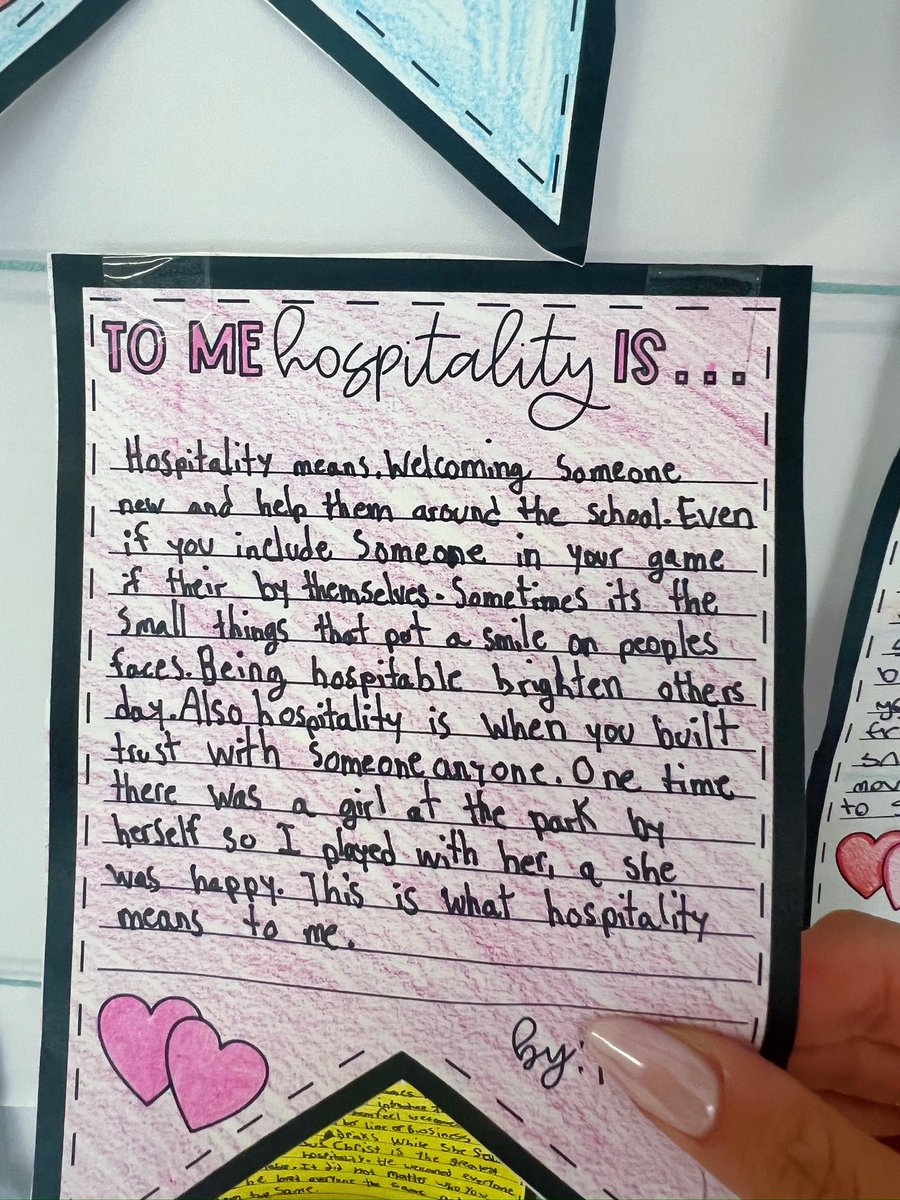 TO ME hospitality IS...
Hospitality means. Welcoming Someone
new and help them around the school. Even
if you include Someone in your game
if their by themselves. Sometimes its the
Small things that pot a smile on peoples
faces. Being hospitable brighten others
day. Also hospitality is when you built
trust with Someone, anyone. One time
there was a girl at the park by
herself so I played with her, a she
was happy. This is what hospitality
means to me.
by:
introduce
feel welcome
her line of Business
drinks While She
Christ is the greatest
hospitality. He welcomed everyone
It did not matter who you
he loved everyone the same
the Same.
to